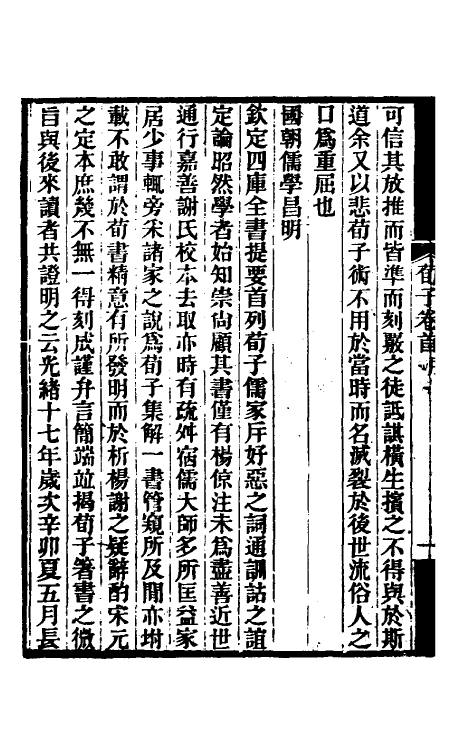 荀子卷首
一
可信其放推而皆準而刻覈之徒詆諆橫生擯之不得與於斯
道余又以悲荀子術不用於當時而名滅裂於後世流俗人之
口爲重屈也
國朝儒學昌明
欽定四庫全書提要首列荀子儒家斥好惡之詞通訓詁之誼
定論昭然學者始知崇尙顧其書僅有楊倞注未爲盡善近世
通行嘉善謝氏校本去取亦時有疏舛宿儒大師多所匡益家
居少事輒旁采諸家之說爲荀子集解一書管窺所及閒亦坿
載不敢謂於荀書精意有所發明而於析楊謝之疑辭酌宋元
之定本庶幾不無一得刻成謹弁言簡端竝揭荀子箸書之微
旨與後來讀者共證明之云光緒十七年歲次辛卯夏五月長